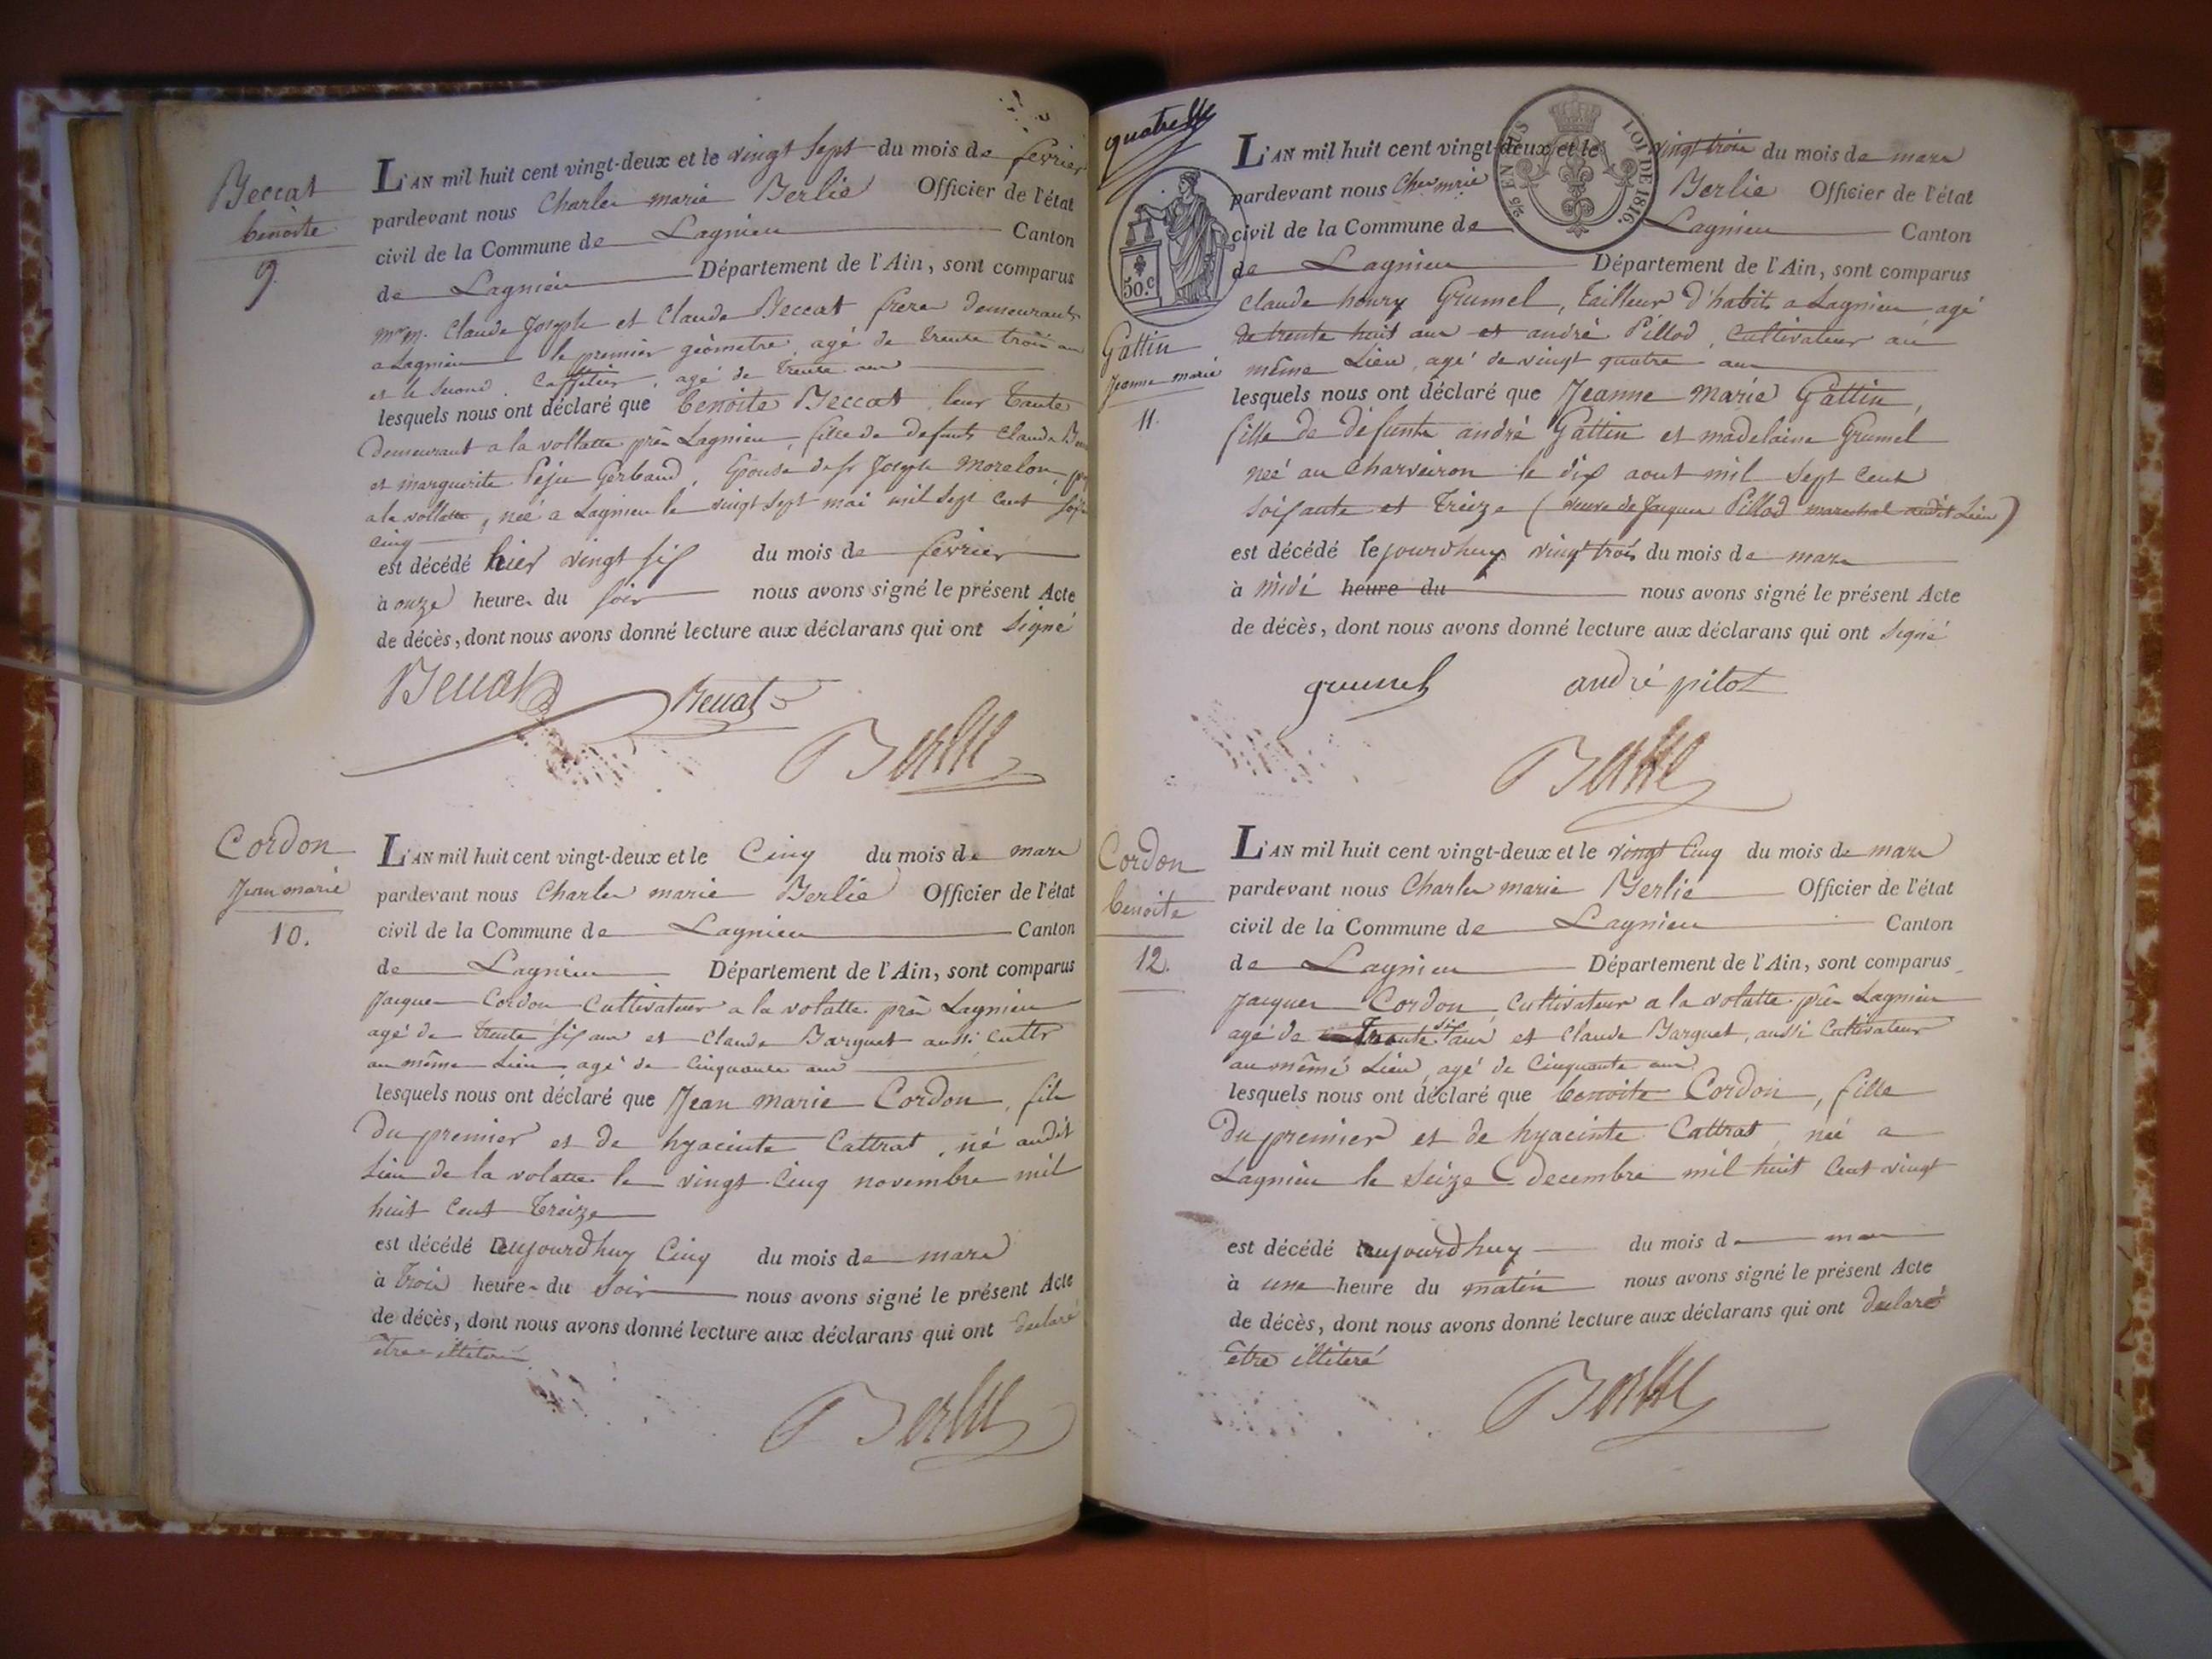 Beccat
benoite
9.
L'AN mil huit cent vingt-deux et le vingt sept du mois de fevrier
pardevant nous Charles marie Berlie Officier de l'état
civil de la Commune de Lagnieu Canton
de Lagnieu Département de l'Ain, sont comparus
Claude Joseph et Claude Beccat frere demeurants
a Lagnieu le premier géometre, agé de trente trois ans
et le second, Caffetier, agé de trente ans
lesquels nous ont déclaré que benoite Beccat leur tante
Demeurant a la vollatte près Lagnieu, fille de defunts Claude
et marguerite Peju Gerbaud, Epouse de sr Joseph Morelon,
a la vollatte, née a Lagnieu le vingt sept mai mil sept cent
cinq
est décédé hier vingt six du mois de fevrier
à onze heures du soir nous avons signé le présent Acte
de décès, dont nous avons donné lecture aux déclarans qui ont signé
Beccat Beccat
Berlie
Cordon
Jean marie
10.
L'AN mil huit cent vingt-deux et le Cinq du mois de mars
pardevant nous Charles marie Berlie Officier de l'état
civil de la Commune de Lagnieu Canton
de Lagnieu Département de l'Ain, sont comparus
Jacques Cordon Cultivateur a la volatte près Lagnieu
agé de trente six ans et Claude Barquet aussi Cultr
au même Lieu agé de Cinquante ans
lesquels nous ont déclaré que Jean marie Cordon, fils
Du premier et de hyacinte Cattrat, né audit
Lieu de la volatte le vingt Cinq novembre mil
huit Cent Treize
est décédé aujourdhuy Cinq du mois de mars
à trois heures du soir nous avons signé le présent Acte
de décès, dont nous avons donné lecture aux déclarans qui ont declaré
être
Berlie
EN SUS LOI DE 1816.
50.c
Gattin
Jeanne marie
11.
L'AN mil huit cent vingt-deux et le vingt trois du mois de mars
pardevant nous Chles mrie Berlie Officier de l'état
civil de la Commune de Lagnieu Canton
de Lagnieu Département de l'Ain, sont comparus
Claude henry Grumel, tailleur d'habits a Lagnieu agé
de trente huit ans et andré Pillod, Cultivateur au
même Lieu, agé de vingt quatre ans
lesquels nous ont déclaré que Jeanne Marie Gattin,
fille de défunts andré Gattin et madelaine Grumel
neé au Charveiron le dix aout mil sept Cent
soixante et Treize (veuve de Jacques Pillod marechal audit Lieu)
est décédé cejourdhuy vingt trois du mois de mars
à midi heure du nous avons signé le présent Acte
de décès, dont nous avons donné lecture aux déclarans qui ont signé
grumel andré pilot
Berlie
Cordon
benoite
12.
L'AN mil huit cent vingt-deux et le vingt Cinq du mois de mars
pardevant nous Charles marie Berlie Officier de l'état
civil de la Commune de Lagnieu Canton
de Lagnieu Département de l'Ain, sont comparus
Jacques Cordon, Cultivateur a la volatte près Lagnieu
agé de Trente six ans et Claude Barquet, aussi Cultivateur
au même Lieu, agé de Cinquante ans
lesquels nous ont déclaré que benoite Cordon, fille
Du premier et de hyacinte Cattrat, neé a
Lagnieu le Seize decembre mil huit Cent vingt
est décédé aujourdhuy du mois de mars
à une heure du matin nous avons signé le présent Acte
de décès, dont nous avons donné lecture aux déclarans qui ont declaré
etre illiteré
Berlie